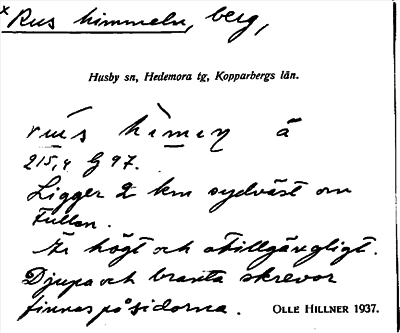 x Rus himmeln, berg,
Husby sn, Hedemora tg, Kopparbergs län.
215,4 G 97.
Ligger 2 km sydväst om
Fullan.
Är högt och otillgängligt.
Djupa och branta skrevor
finnas på sidorna.
OLLE HILLNER 1937.